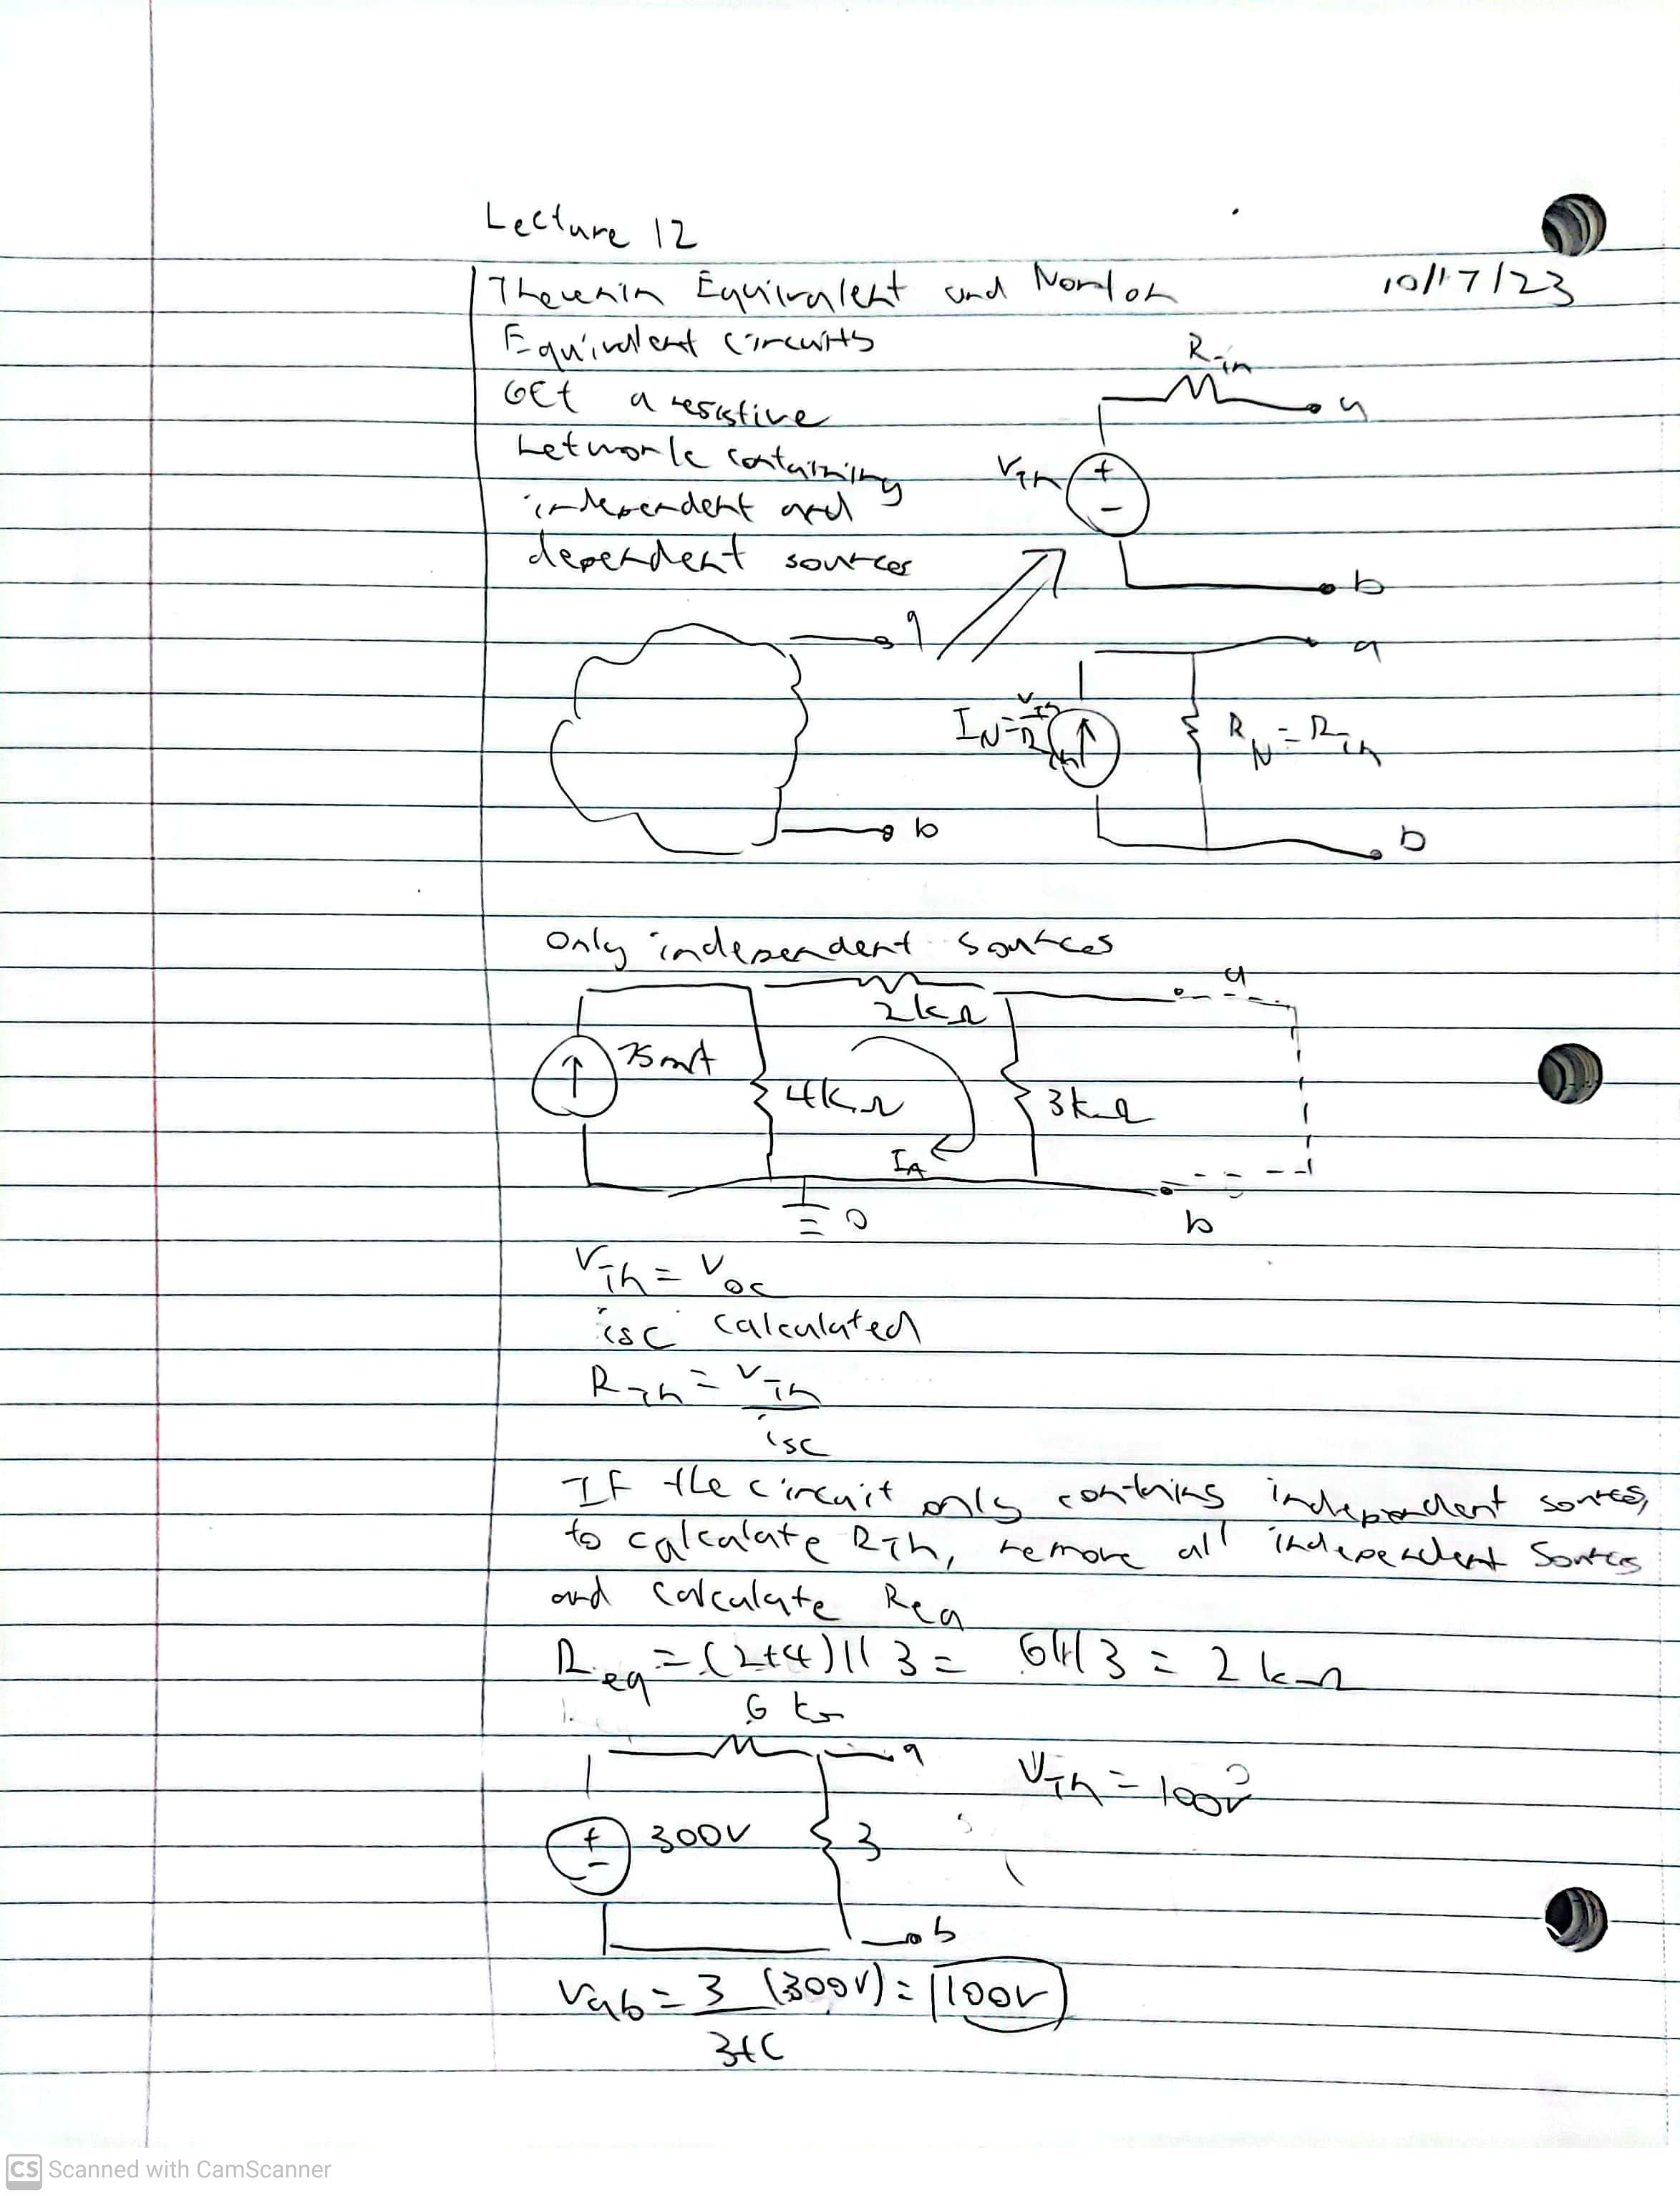 Lecture 12
Thevenin Equivalent and Norton
10/17/23
Equivalent circuits
Get a resistive
network containing
independent and
dependent sources
R_Th
a
V_Th
+
-
b
a
b
a
I_N = V_Th / R_Th
R_N = R_Th
b
Only independent sources
2kΩ
a
75mA
4kΩ
3kΩ
I_A
0
b
V_Th = V_oc
i_sc calculated
R_Th = V_Th
i_sc
If the circuit only contains independent sources,
to calculate RTh, remove all independent sources
and calculate Req
R_eq = (2+4) || 3 = 6 || 3 = 2 kΩ
6 kΩ
a
V_Th = 100V
+
-
300V
3
b
Vab = 3 (300V) = 100V
3+6
CS Scanned with CamScanner